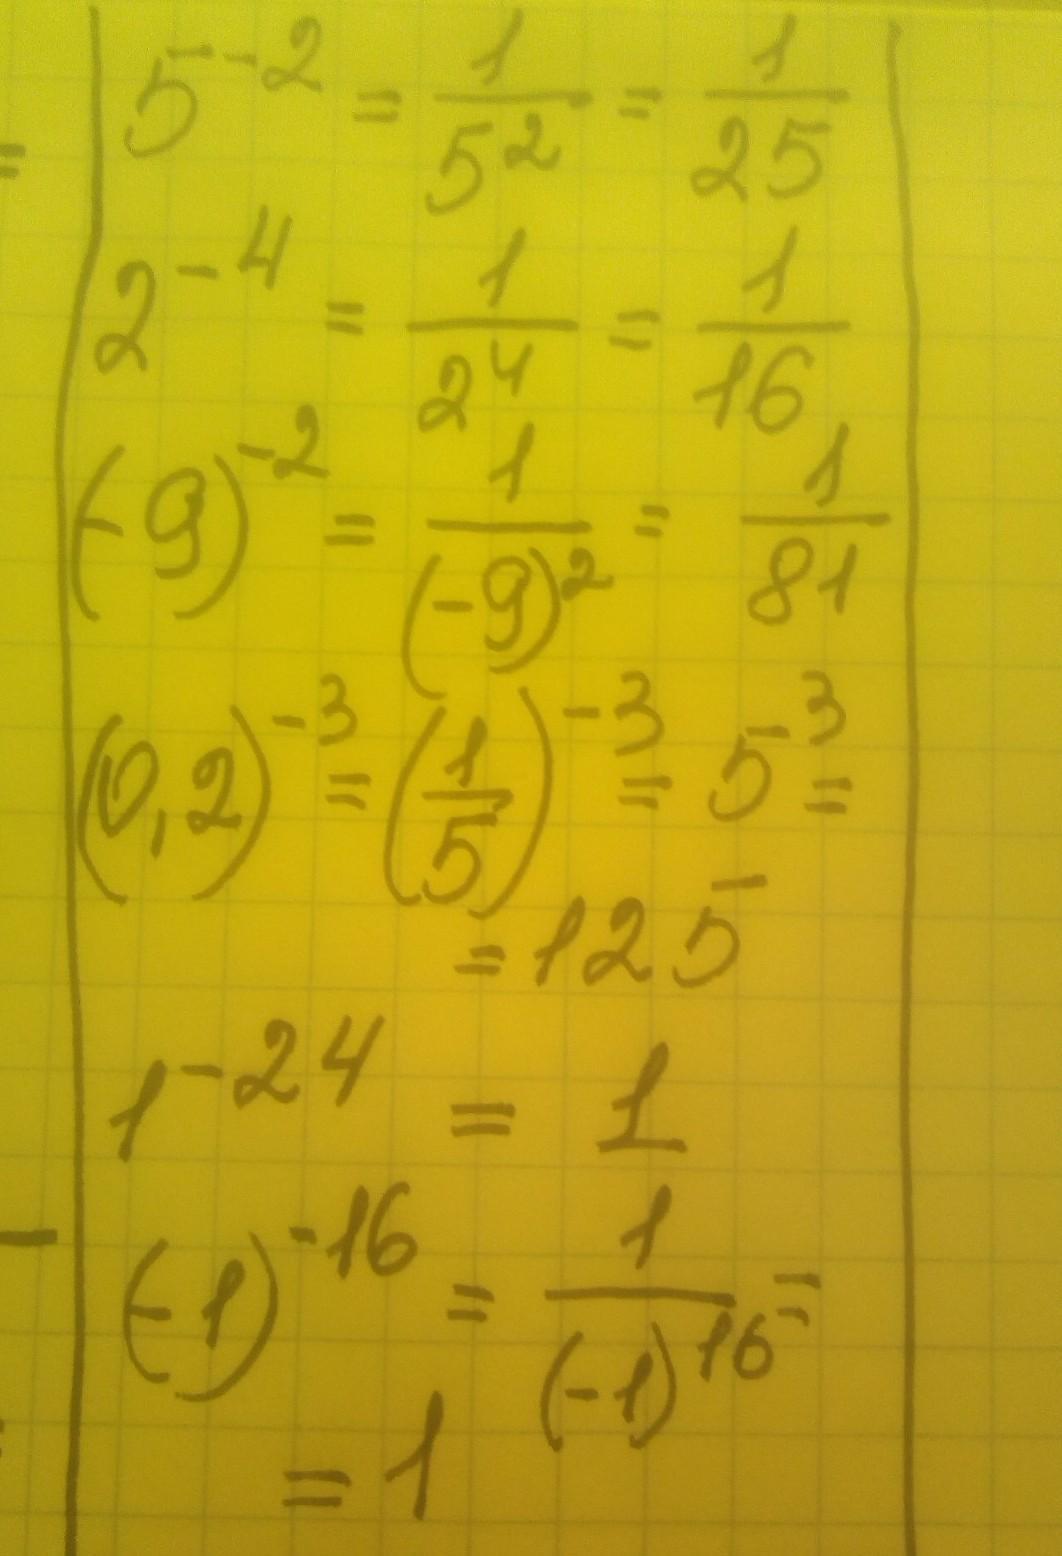 5^-2 = 1/5^2 = 1/25
2^-4 = 1/2^4 = 1/16
(-9)^-2 = 1/(-9)^2 = 1/81
(0,2)^-3 = (1/5)^-3 = 5^3 =
= 125
1^-24 = 1
(-1)^-16 = 1/(-1)^16 =
= 1